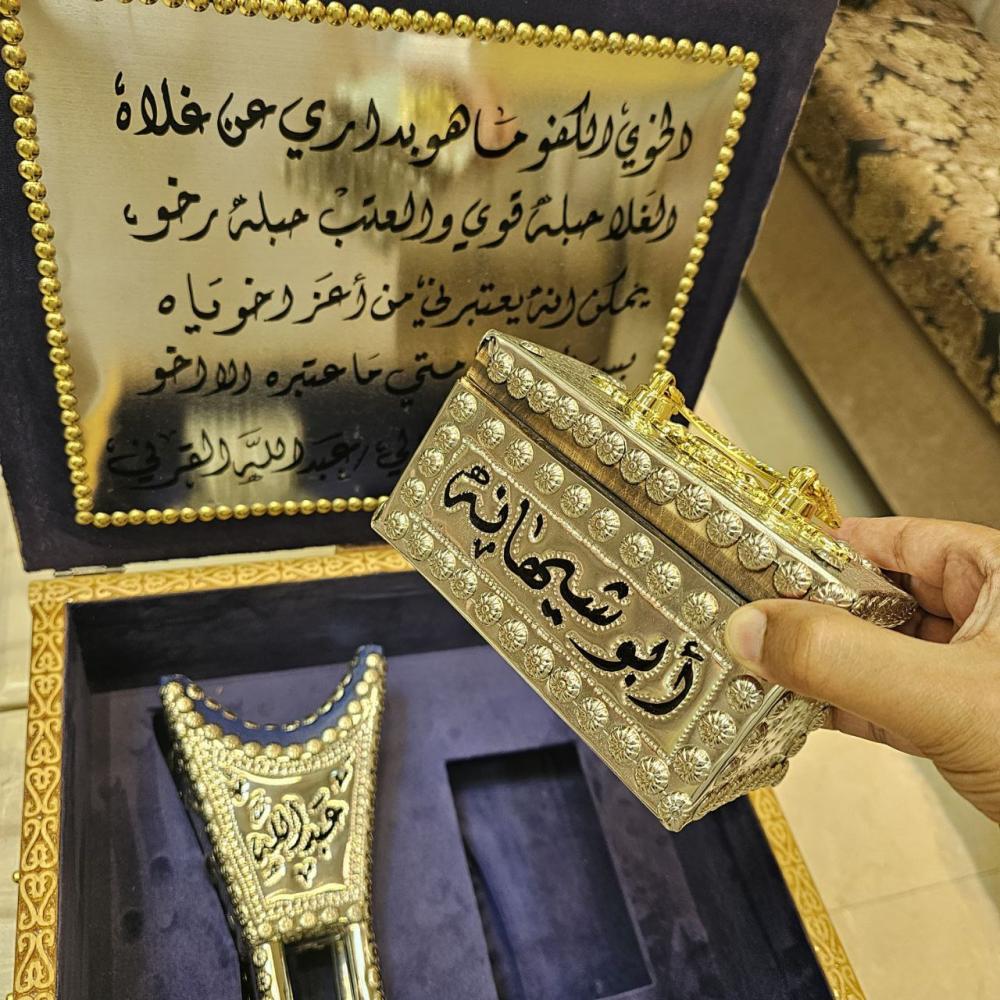 الخوي الكفو ما هو بداري عن غلاه
الغلا حبله قوي والعتب حبله رخو
يمكن انه يعتبرني من أعز اخوياه
متي ما عتبره الا اخو
عبدالله القرني
أبو شيهانه
عبدالله